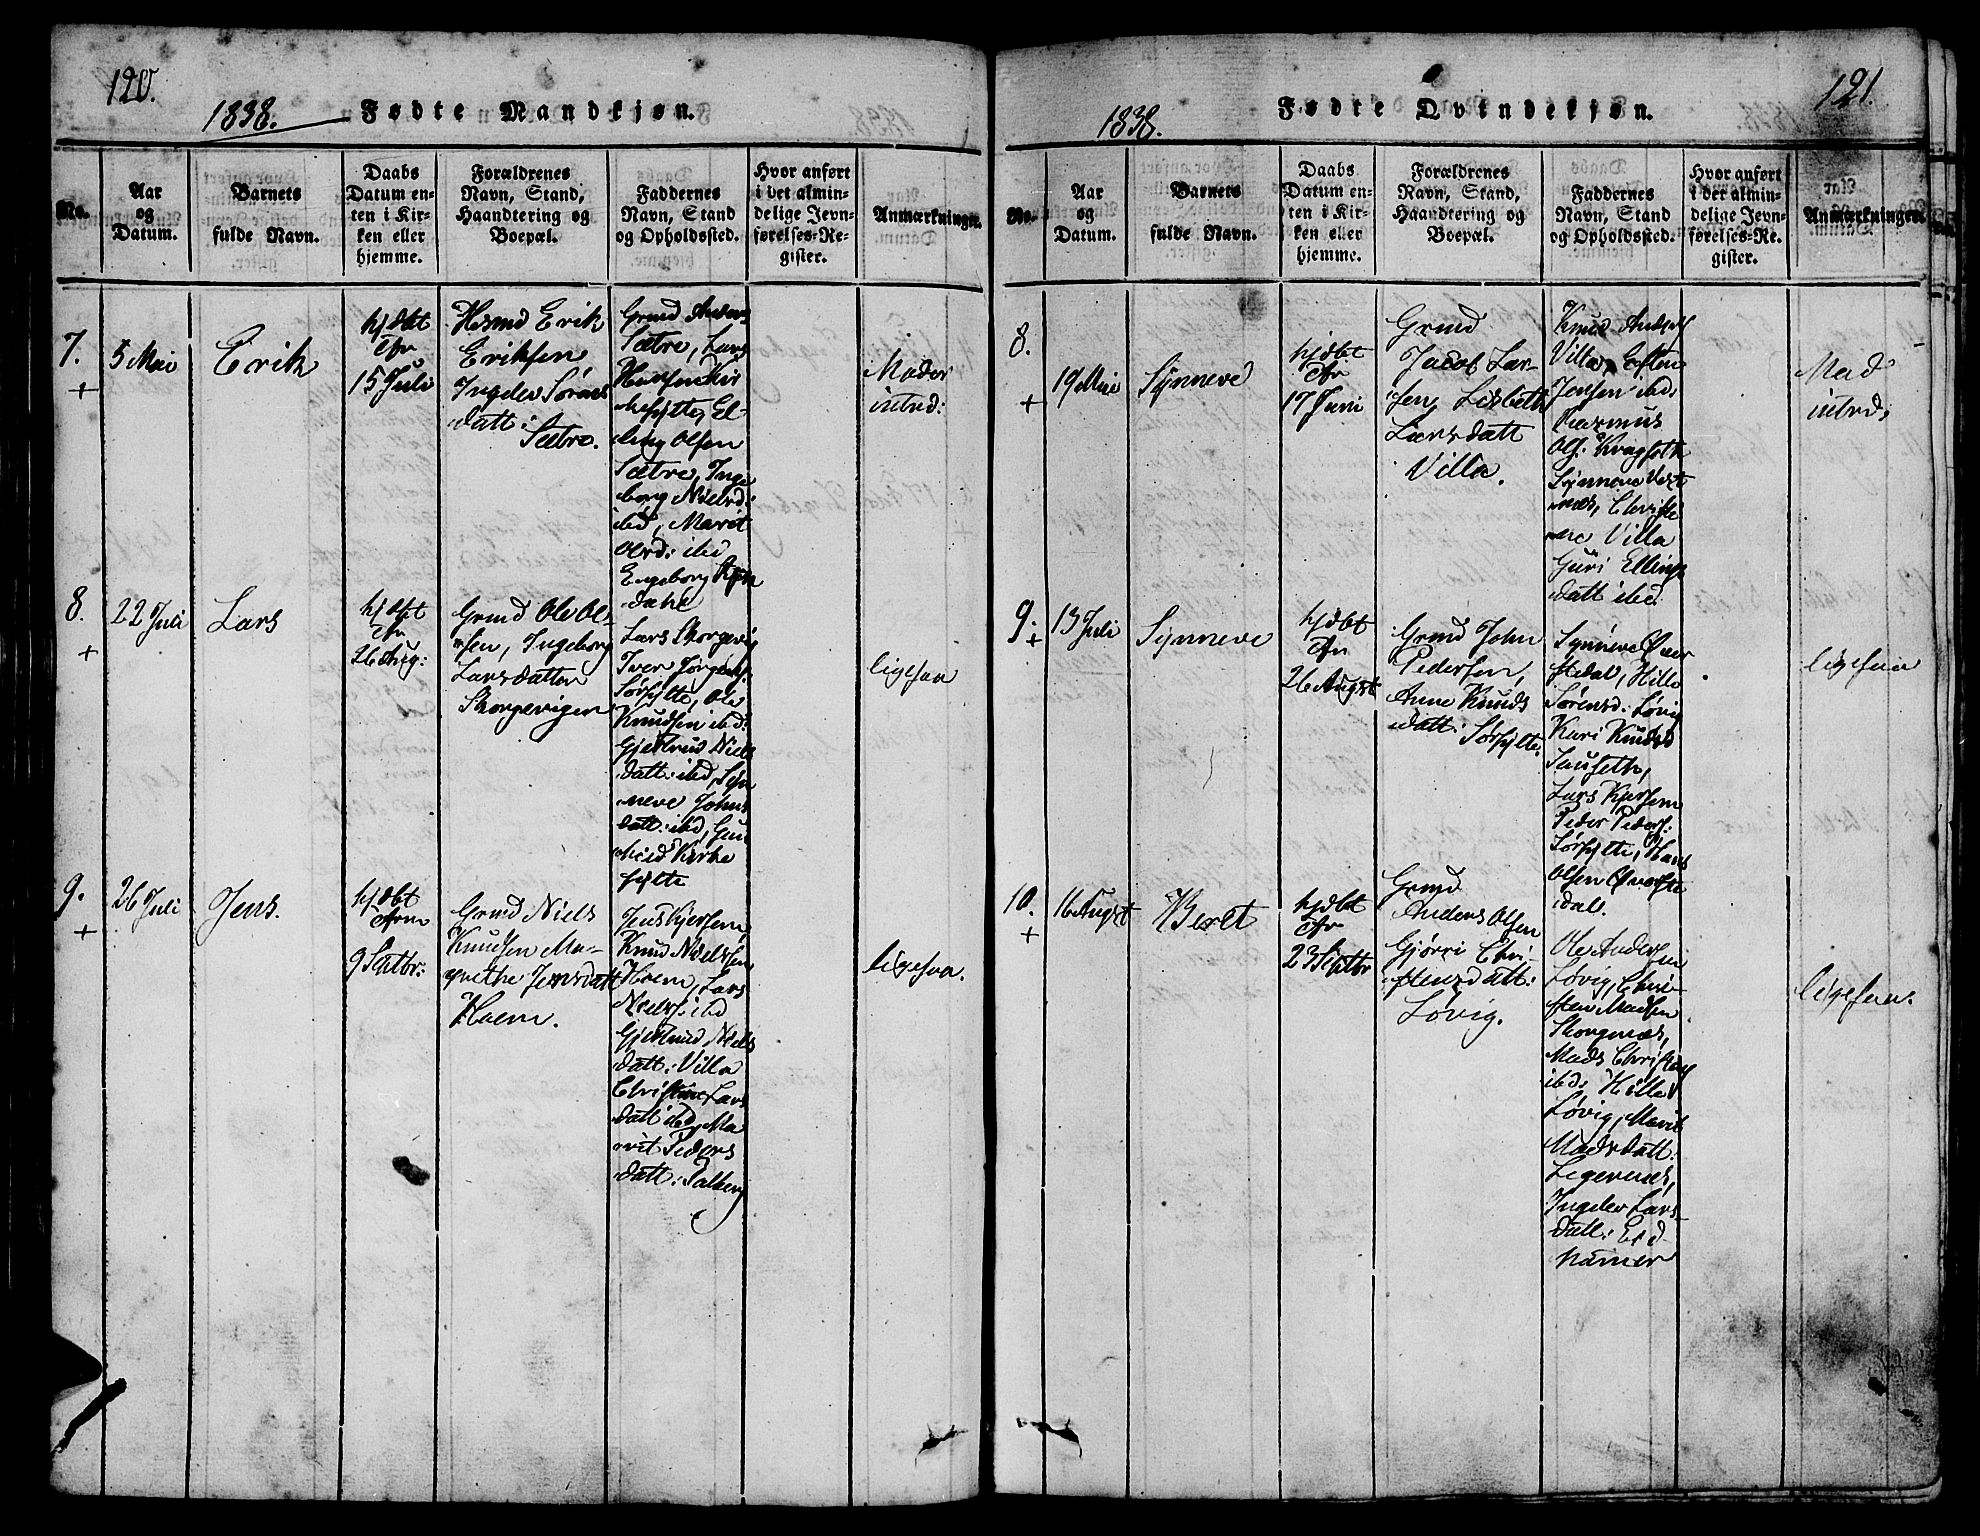 120.
1838. Fødte Mandkjøn.
No.
Aar
og
Datum.
Barnets
fulde Navn.
Daabs
Datum en-
ten i Kir-
ken eller
hjemme.
Forældrenes
Navn, Stand,
Haandtering og
Boepæl.
Faddernes
Navn, Stand
og Opholdssted.
Hvor anført
i det almin-
delige Jevn-
førelses-Re-
gister.
Anmærkninger.
7.
+
5 Mai
Erik
hjdbt
15 Juli
Erik
Eriksen
Ingeler Sørens
datt:
Sætre.
Grmd Anders
Sætre, Lars
Hansen Kir
kefylte, El-
ling Olsen
Sætre, Inge
borg Nielsd:
ibd, Marit
Olsd: ibd
Engeborg
dahl
Moder
introd:
8.
+
22 Juli
Lars
hjdbt
26 Aug:
Grmd Ole Ol-
sen, Ingeborg
Larsdatter
Skorgevigen
Lars Skorgevig
Iver Jørgens:
Sørfylte, Ole
Knudsen ibd:
Gjertrud Niels
datt: ibd, Syn
neve Johns
datt: ibd, Gun
hild Kirke
fylte
ligesaa
9.
+
26 Juli
Jens.
hjdbt
9 Septbr:
Grmd Niels
Knudsen Ma-
grethe Jensdatt
Hoem.
Jens Kjersem,
Knud Nielsen
Hoem, Lars
Niels: ibd
Gjertrud Niels
datt: Villa
Christine Lars
datt ibd, Ma
rit Peders
datt: Salberg
ligesaa.
121.
1838. Fødte Qvindekjøn.
No.
Aar
og
Datum.
Barnets
fulde Navn.
Daabs
Datum en-
ten i Kir-
ken eller
hjemme.
Forældrenes
Navn, Stand,
Haandtering og
Boepæl.
Faddernes
Navn, Stand
og Opholdssted.
Hvor anført
i det almin-
delige Jevn-
førelses-Re-
gister.
Anmærkninger.
8.
+
19 Mai
Synneve
hjdbt
17 Juni
Grmd
Jacob Lar-
sen, Lisbeth
Larsdatt
Villa.
Knud Anders
Villa, Esten
Jensen ibd:
Rasmus
Ols: Kragseth
Synneve Vest
næs, Christi
ane Villa
Guri Ellings
datt ibd.
Mod
introd:
9.
+
13 Juli
Synneve
hjdbt
26 August
Grmd John
Pedersen,
Anne Knuds
datt: Sørfylte.
Synneve Øver
stedal, Hille
Sørensd: Løvig
Kari Knudsd
Sauseth,
Lars Kjersem
Peder Peders:
Sørfylte, Hans
Olsen Øverste
dal.
ligesaa
10.
+
16 August
Beret
hjdbt
23 Septbr
Grmd
Anders Olsen
Gjørri Chri-
stensdatt:
Løvig.
Ole Andersen
Løvig, Chri-
sten Madsen
Skorgenæs,
Mads Christens
ibd: Hille
Løvig, Marit
Madsdatt:
Legernæs,
Ingeler Lars
datt: Eid-
hamer
ligesaa.